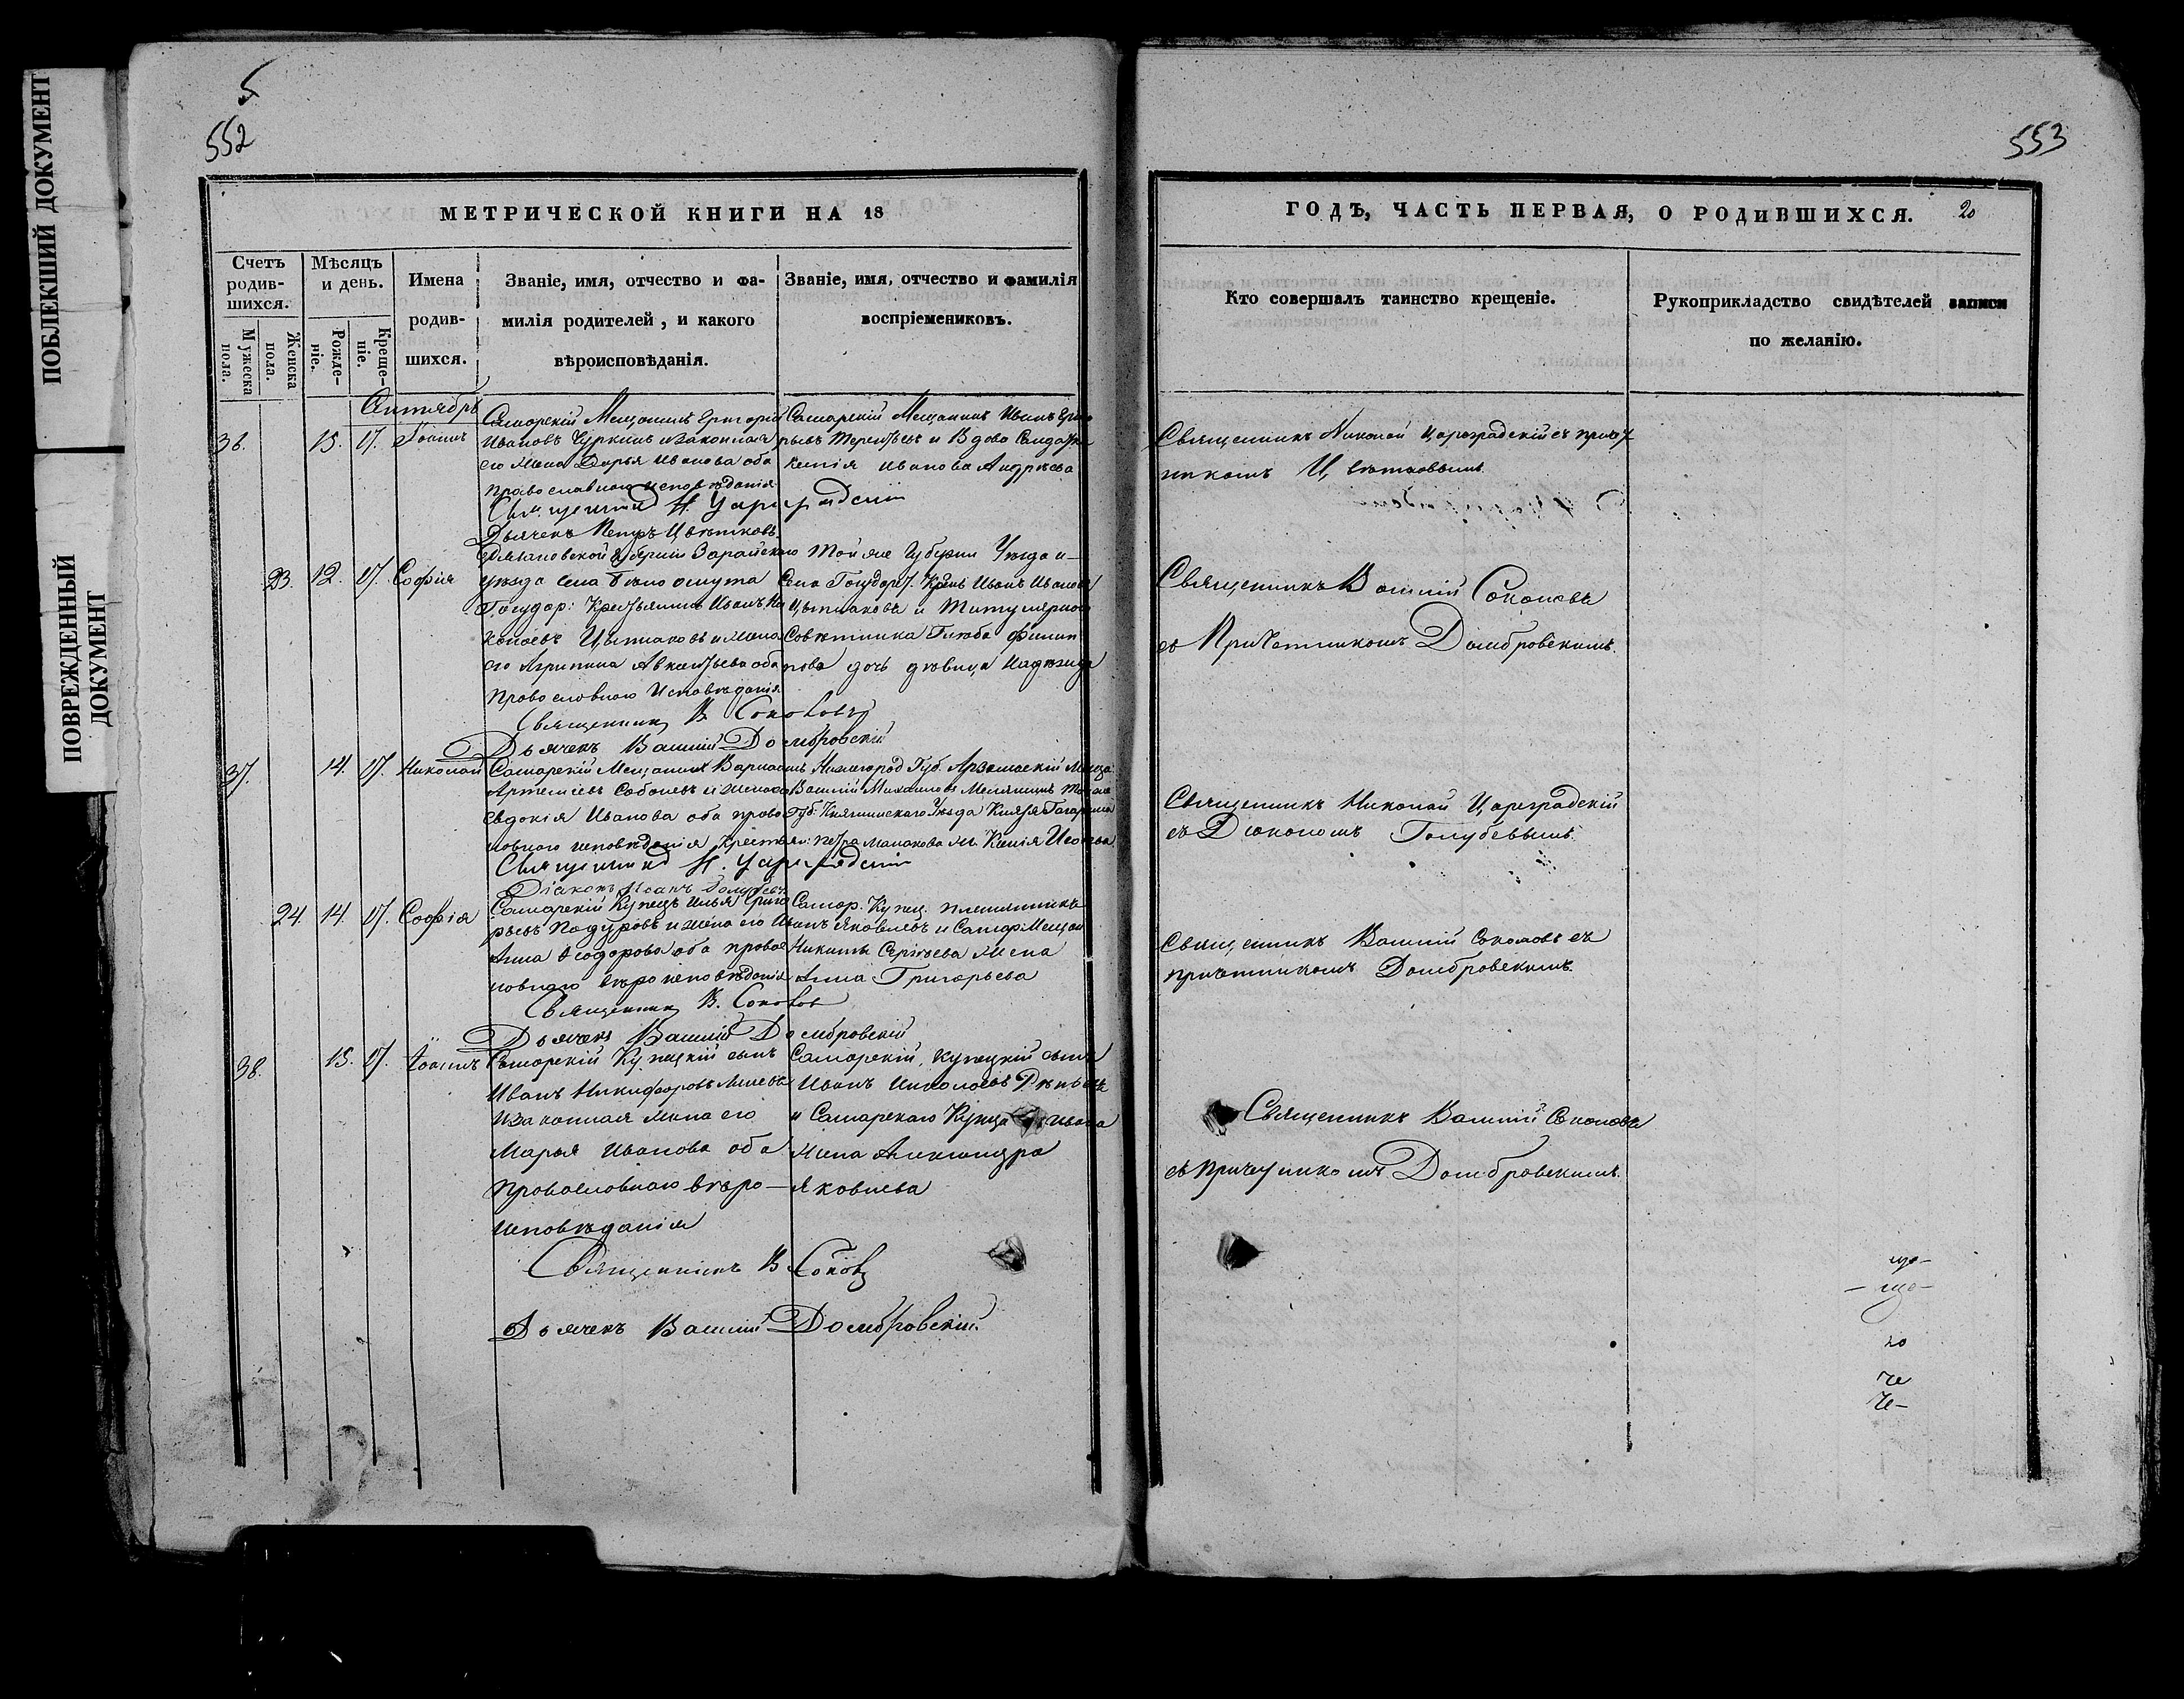 ПОБЛЕКШИЙ ДОКУМЕНТ
ПОВРЕЖДЕННЫЙ
ДОКУМЕНТ
5
552
МЕТРИЧЕСКОЙ КНИГИ НА 18
Счетъ родив-шихся.
Мужеска пола.
Женска пола.
Мѣсяцъ и день.
Рожде-ніе.
Креще-ніе.
Имена родив-шихся.
Званіе, имя, отчество и фа-
милія родителей, и какого
вѣроисповѣданія.
Званіе, имя, отчество и фамилія
воспріемениковъ.
Сентябрь
36. 15. 17. Іоаннъ
Самарскій Мещанинъ Григорій
Ивановъ Чуркинъ и законная
его жена Дарья Иванова оба
православнаго исповѣданія
Самарскій Мещанинъ Иванъ
Терентьевъ и Вдова
Иванова Андреева
Священникъ Н. Цареградскій
Дьячекъ Петръ Цвѣтковъ
23. 12. 17. Софія
Рязанской Губерніи Зарайскаго
уѣзда села Бѣлоомута
Государ: Крестьянинъ Иванъ
Цыплаковъ и жена
его Агрипина Авксентьева оба
православнаго Исповѣданія
Той же Губерніи Уѣзда и
Села Государ. Крень Иванъ Ивановъ
Цыплаковъ и Титулярнаго
Совѣтника Глѣба Филип
пова дочь дѣвица Надежда
Священникъ В Соколовъ
Дьячекъ Василій Домбровскій
37. 14. 17. Николай
Самарскій Мещанинъ Варлаамъ
Артемьевъ Соболевъ и жена
Евдокія Иванова оба право
славнаго исповѣданія
Нижегород Губ. Арзамаскій Меща
Василій Михайловъ
Губ. Княгининскаго Уѣзда Князя Гагарина
Крестьян: Петра Малакова ж. Ксенія
Священникъ Н. Цареградскій
Діаконъ Іоаннъ Голубевъ
24 14. 17. Софія
Самарскій Купецъ Илья Григо
рьевъ Подуровъ и жена его
Анна Ѳеодорова оба право
славнаго вѣроисповѣданія
Самар. Купец. племянникъ
Иванъ Яковлевъ и Самар. Мещан
Никиты Сергѣева жена
Анна Григорьева
Священникъ В. Соколов
Дьячекъ Василій Домбровскій
38. 15. 17. Іоаннъ
Самарскій Купецкій сынъ
Иванъ Никифоровъ
и законная жена его
Марья Иванова оба
Православнаго вѣро-
исповѣданія
Самарскій, купецкій сынъ
Иванъ Николаевъ
и Самарскаго Купца Ивана
жена Александра
Яковлева
Священникъ В Соколовъ
Дьячекъ Василій Домбровскій
553
ГОДЪ, ЧАСТЬ ПЕРВАЯ, О РОДИВШИХСЯ.
20
Кто совершалъ таинство крещеніе.
Рукоприкладство свидѣтелей записи
по желанію.
Священникъ Николай Цареградскій съ причет
никомъ Цвѣтковымъ.
Священникъ Василій Соколовъ
съ Причетникомъ Домбровскимъ.
Священникъ Николай Цареградскій
съ Діакономъ Голубевымъ.
Священникъ Василій Соколовъ съ
причетникомъ Домбровскимъ.
Священникъ Василій Соколовъ
съ причетникомъ Домбровскимъ.